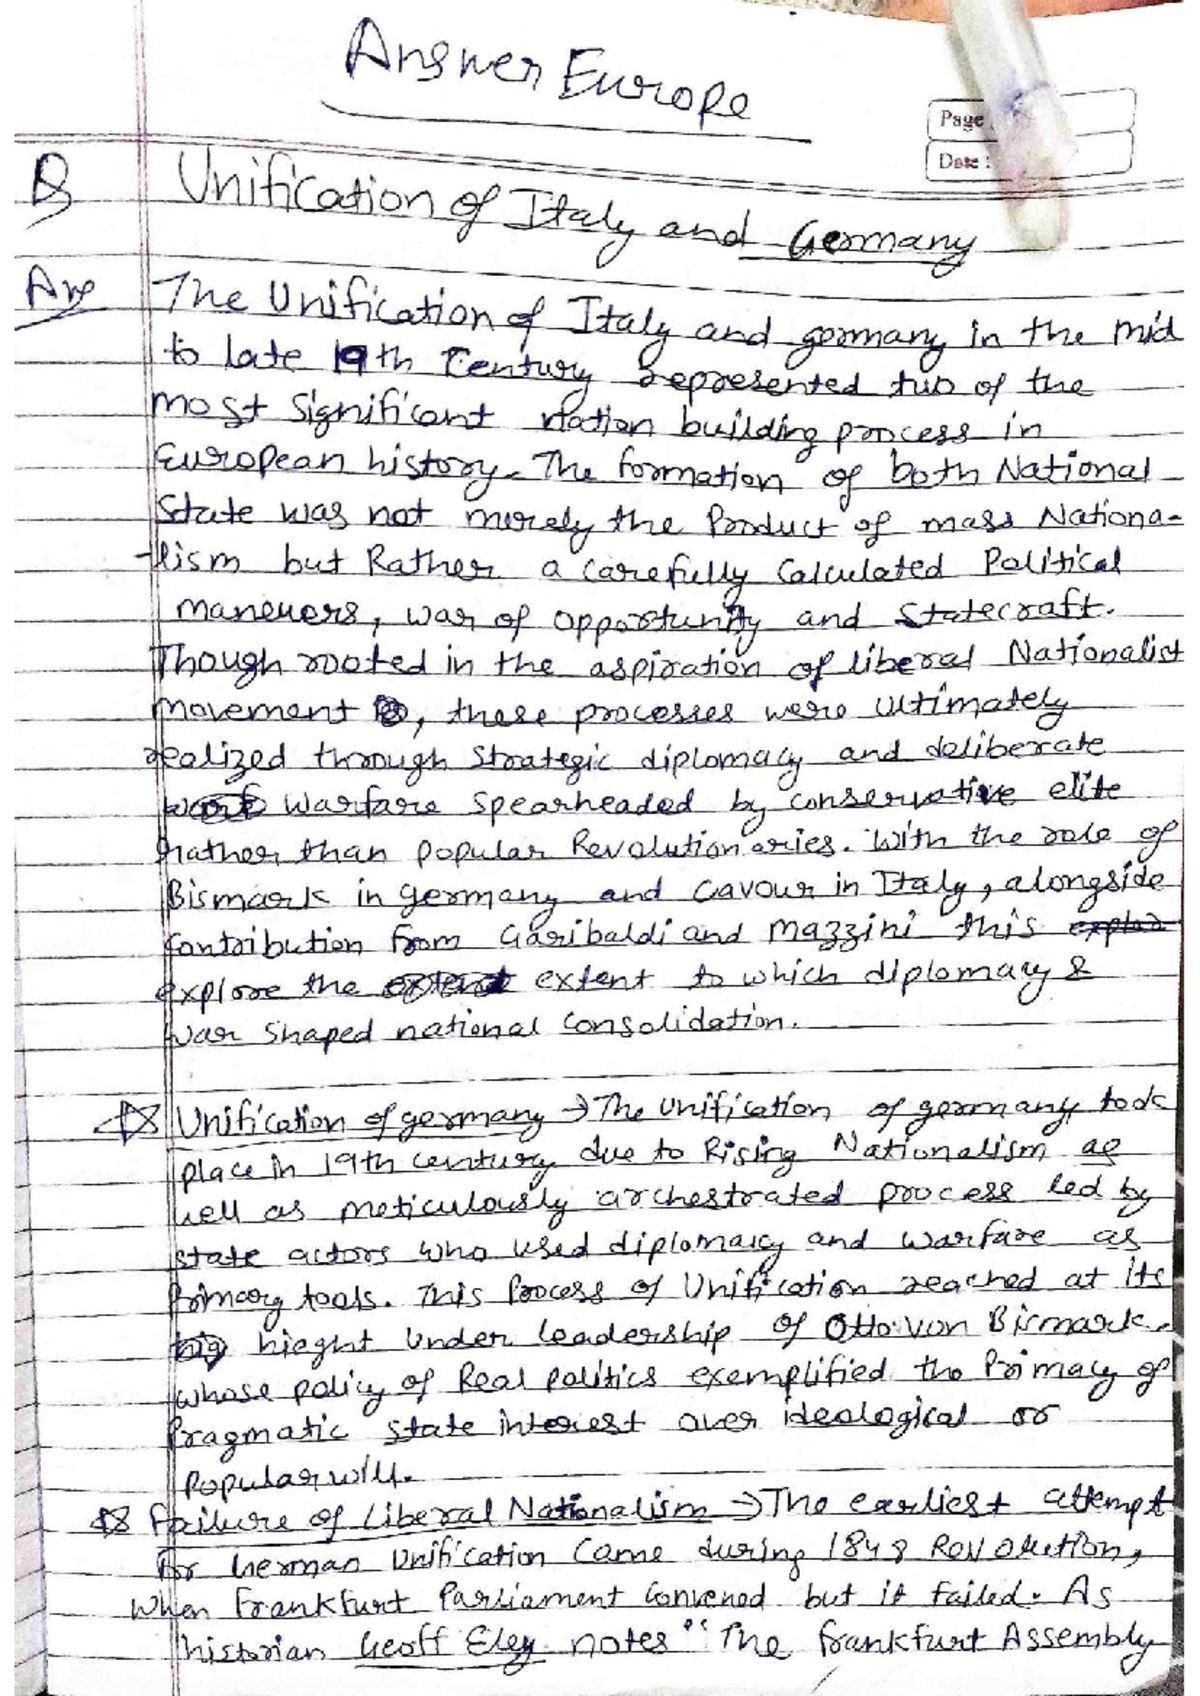 Answer Europe
Page
Date :
B Unification of Italy and Germany
Ans The Unification of Italy and germany in the mid
to late 19th Century represented two of the
most significant nation building process in
European history. The formation of both National
State was not merely the Product of mass Nationa-
-lism but Rather a carefully Calculated Political
maneuers, war of opportunity and Statecraft.
Though rooted in the aspiration of liberal Nationalist
movement , these processes were ultimately
realized through Strategic diplomacy and deliberate
warfare spearheaded by conservative elite
rather than popular Revolutionaries. With the role of
Bismark in germany and Cavour in Italy, alongside
Contribution from Garibaldi and Mazzini this
explore the extent to which diplomacy &
war Shaped national Consolidation.
Unification of germany → The Unification of germany took
place in 19th century due to Rising Nationalism as
well as meticulously orchestrated process led by
state actors who used diplomacy and warfare as
Primary tools. This Process of Unification reached at its
hieght Under leadership of Otto von Bismark.
whose policy of Real politics exemplified the Primacy of
Pragmatic State interest over ideological or
Popular will.
Failure of Liberal Nationalism → The earliest attempt
for German Unification Came during 1848 Revolution,
When Frankfurt Parliament Convened but it failed. As
historian Geoff Eley notes " The frankfurt Assembly